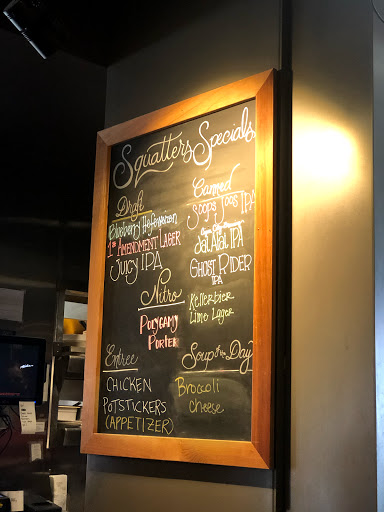 Squatters Specials
Draft
Blueberry Hefeweizen
1st AMENDMENT LAGER
JUICY IPA
Canned
Hops IPA
Jal Alai IPA
GHOST RIDER
IPA
Kellerbier
Lime Lager
Nitro
POLYGAMY
PORTER
Entree
CHICKEN
POTSTICKERS
(APPETIZER)
Soup of the Day
Broccoli
cheese